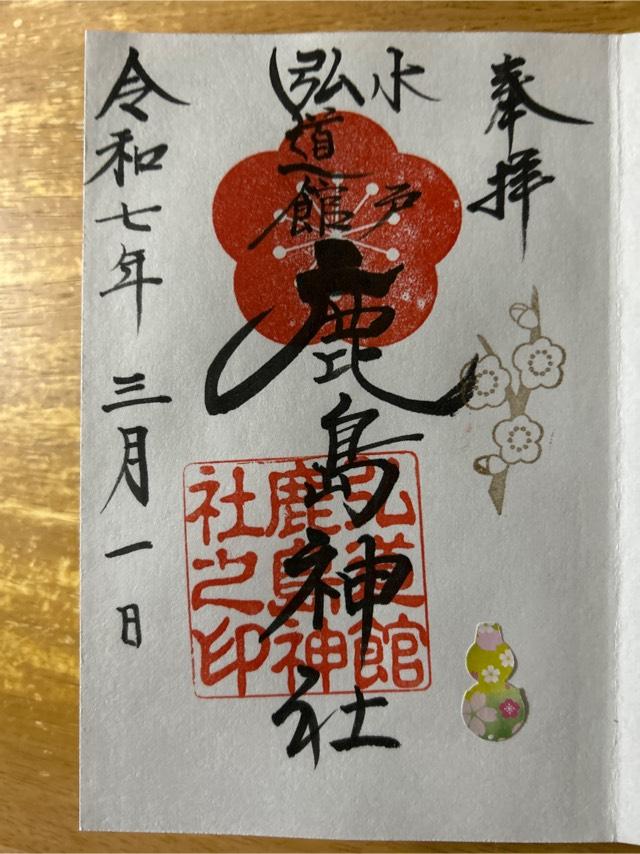 奉拝
水戸
弘道館
鹿島神社
弘道館
鹿島神
社之印
令和七年三月一日